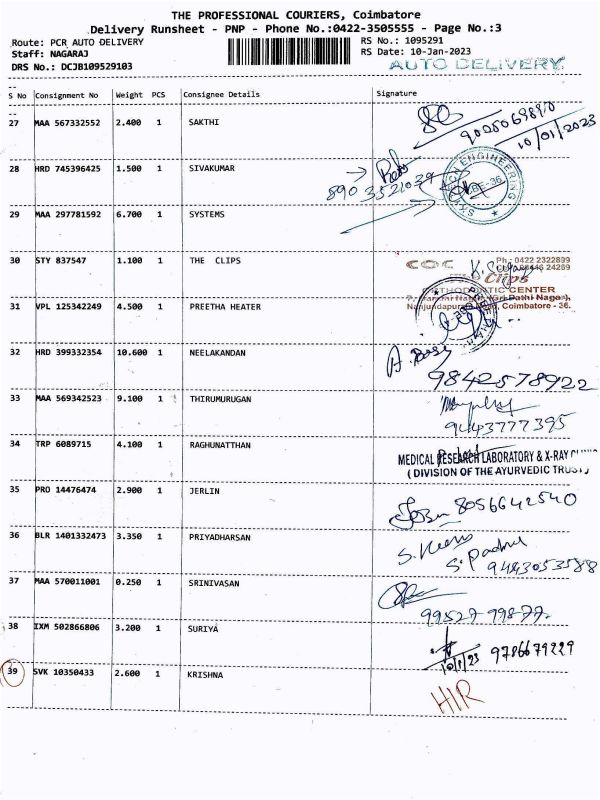 THE PROFESSIONAL COURIERS, Coimbatore
Delivery Runsheet - PNP - Phone No.:0422-3505555 - Page No.:3
Route: PCR AUTO DELIVERY
RS No.: 1095291
Staff: NAGARAJ
RS Date: 10-Jan-2023
DRS No.: DCJB109529103
AUTO DELIVERY
S No Consignment No Weight PCS Consignee Details Signature
27 MAA 567332552 2.400 1 SAKTHI
10/01/2023
28 HRD 745396425 1.500 1 SIVAKUMAR
8903521039
ENGINEERING
29 MAA 297781592 6.700 1 SYSTEMS
30 STY 837547 1.100 1 THE CLIPS
Ph: 0422 2322899
Clips
CENTER
Coimbatore - 36.
31 VPL 125342249 4.500 1 PREETHA HEATER
32 HRD 399332354 10.600 1 NEELAKANDAN
9842578922
33 MAA 569342523 9.100 1 THIRUMURUGAN
9443777395
34 TRP 6089715 4.100 1 RAGHUNATTHAN
MEDICAL RESEARCH LABORATORY & X-RAY CLINIC
( DIVISION OF THE AYURVEDIC TRUST )
35 PRO 14476474 2.900 1 JERLIN
8056642540
36 BLR 1401332473 3.350 1 PRIYADHARSAN
9443053588
37 MAA 570011001 0.250 1 SRINIVASAN
99527 99877
38 IXM 502866806 3.200 1 SURIYA
10/1/23 9786679229
39 SVK 10350433 2.600 1 KRISHNA
HIR